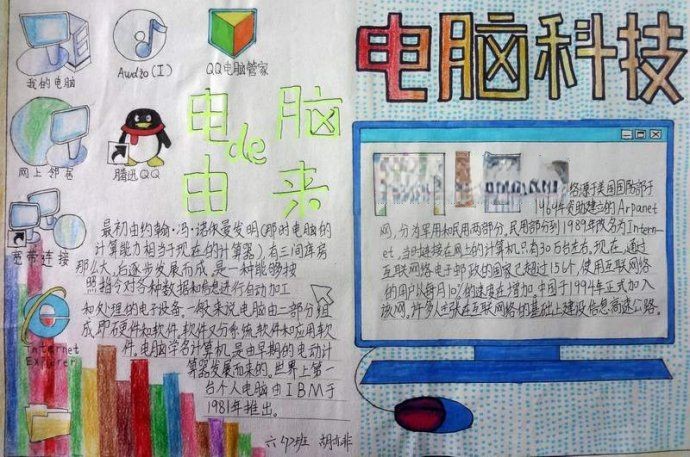 电脑科技
我的电脑
Audio(I)
QQ电脑管家
网上邻居
腾迅QQ
宽带连接
Internet
Explorer
电脑
de
由来
最初由约翰·冯·诺依曼发明(那时电脑的
计算能力相当于现在的计算器),有三间库房
那么大,后逐步发展而成,是一种能够按
照指令对各种数据和信息进行自动加工
和处理的电子设备。一般来说,电脑由二部分组
成,即硬件和软件,软件又分系统软件和应用软
件。电脑学名计算机,是由早期的电动计
算器发展而来的。世界上第一
台个人电脑由IBM于
1981年推出。
络源于美国国防部于
1969年资助建立的Arpanet
网,分为军用和民用两部分,民用部分到1989年改名为Inter-
net,当时连接在网上的计算机只有30万台左右。现在,通过
互联网络电子邮政的国家已超过154个,使用互联网络
的用户以每月10%的速度在增加。中国于1994年正式加入
该网。许多人主张在互联网络的基础上建设信息高速公路。
六 班 胡 非